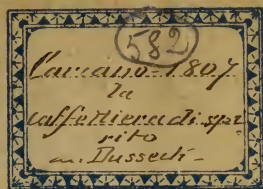 582
Carcano - 1807
la
caffettiera di spi
rito
m. Dussech -